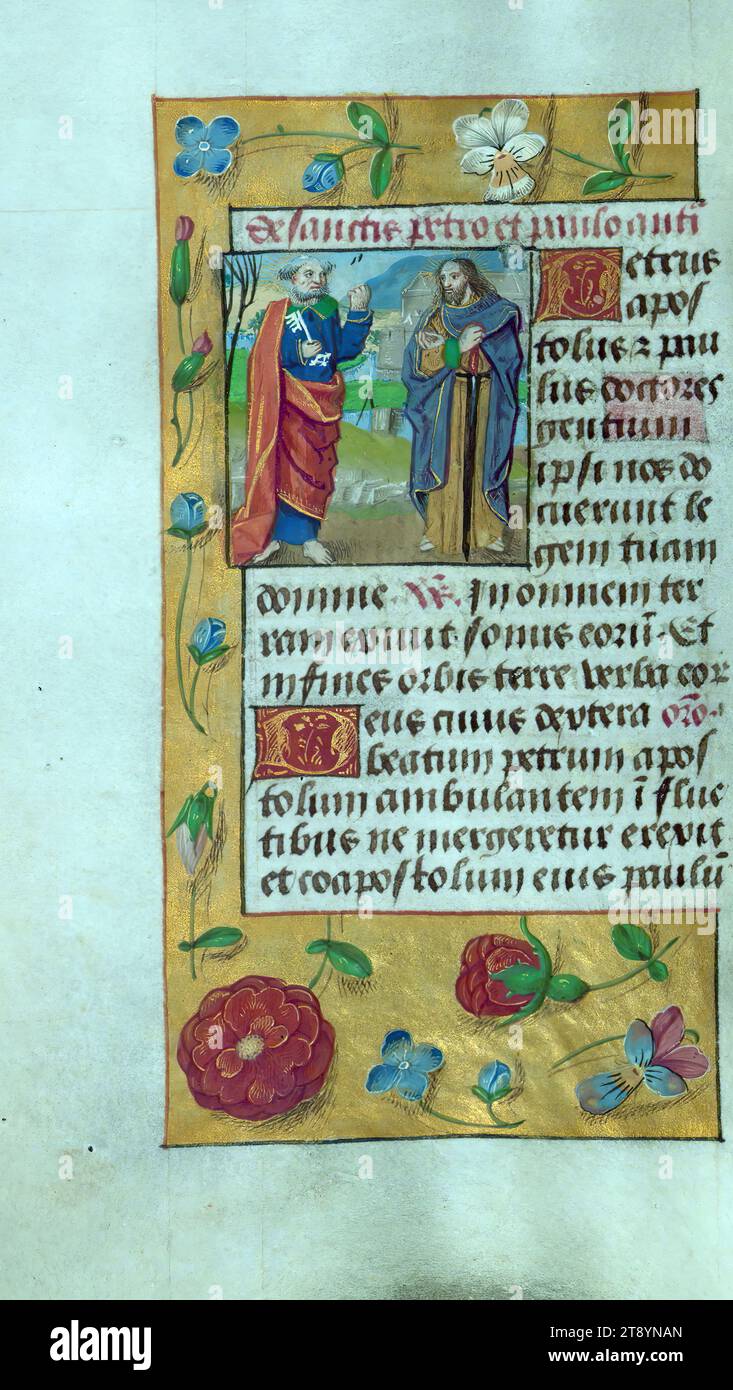 De sanctis petro et paulo anti
Petrus
apos
tolus & pau
lus doctores
gentium
ipsi nos do
cuerunt le
gem tuam
domine. W. In omnem ter
ram exiuit sonus eorū. Et
in fines orbis terre verba eor
Deus cuius dextera orō.
beatum petrum apos
tolum ambulantem ī fluc
tibus ne mergeretur erexit
et coapostolum eius paulū
alamy
Image ID: 2T8YNAN
www.alamy.com